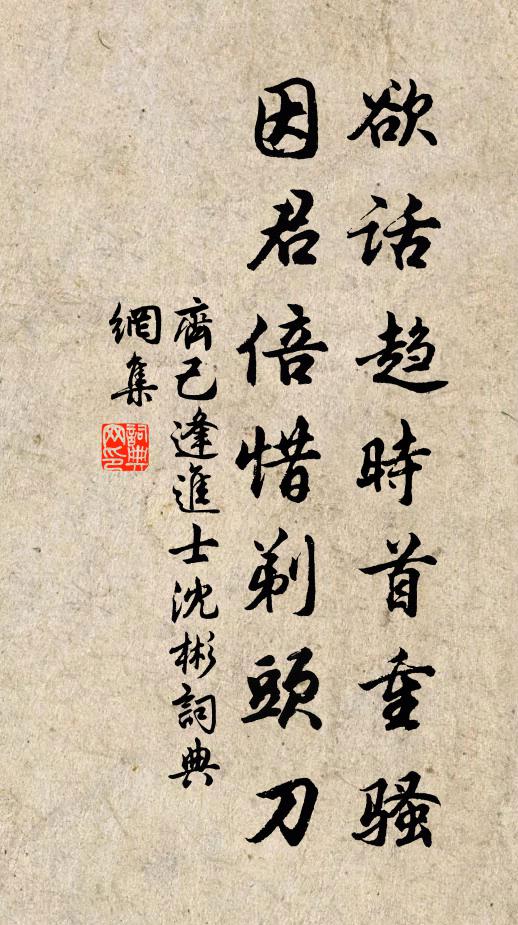 欲话趋時首重骚
因君倍惜剃頭刀
齊己逢進士沈彬詞典
網集
詞典
网印